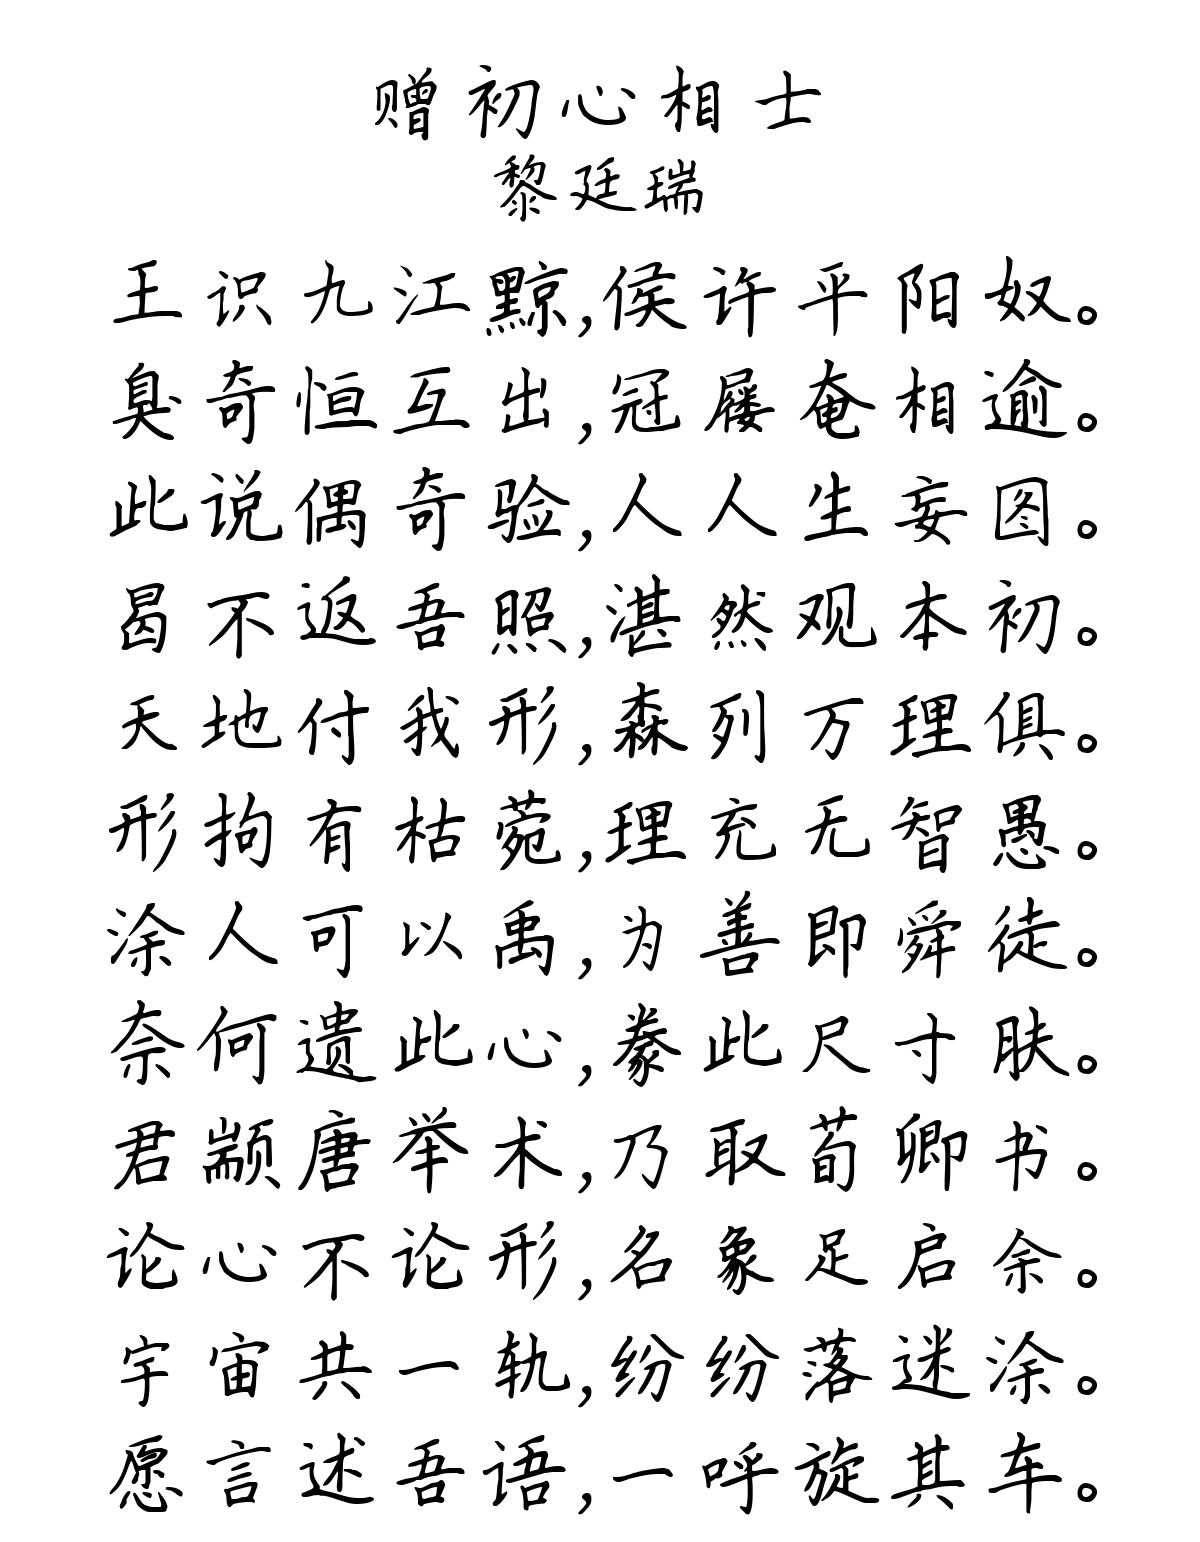 赠初心相士
黎廷瑞
王识九江黥,侯许平阳奴。
臭奇恒互出,冠屦奄相逾。
此说偶奇验,人人生妄图。
曷不返吾照,湛然观本初。
天地付我形,森列万理俱。
形拘有枯菀,理充无智愚。
涂人可以禹,为善即舜徒。
奈何遗此心,豢此尺寸肤。
君颛唐举术,乃取荀卿书。
论心不论形,名象足启余。
宇宙共一轨,纷纷落迷涂。
愿言述吾语,一呼旋其车。